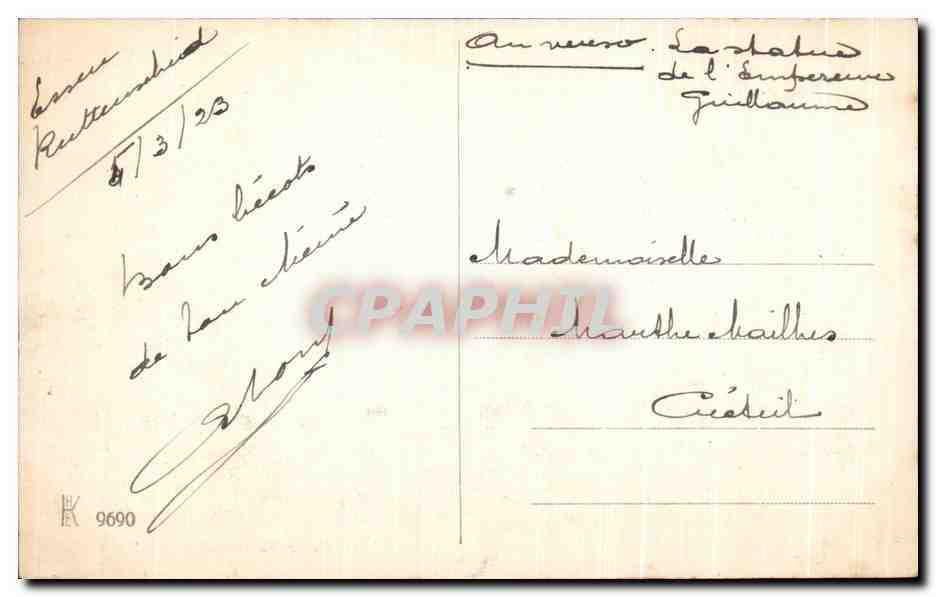 Essen
Ruttenscheid
5/3/23
Bons bécots
de ton Aimé
Au verso. La statue
de l'Empereur
Guillaume
Mademoiselle
Marthe Mailhes
Créteil
CPAPHIL
HK
9690